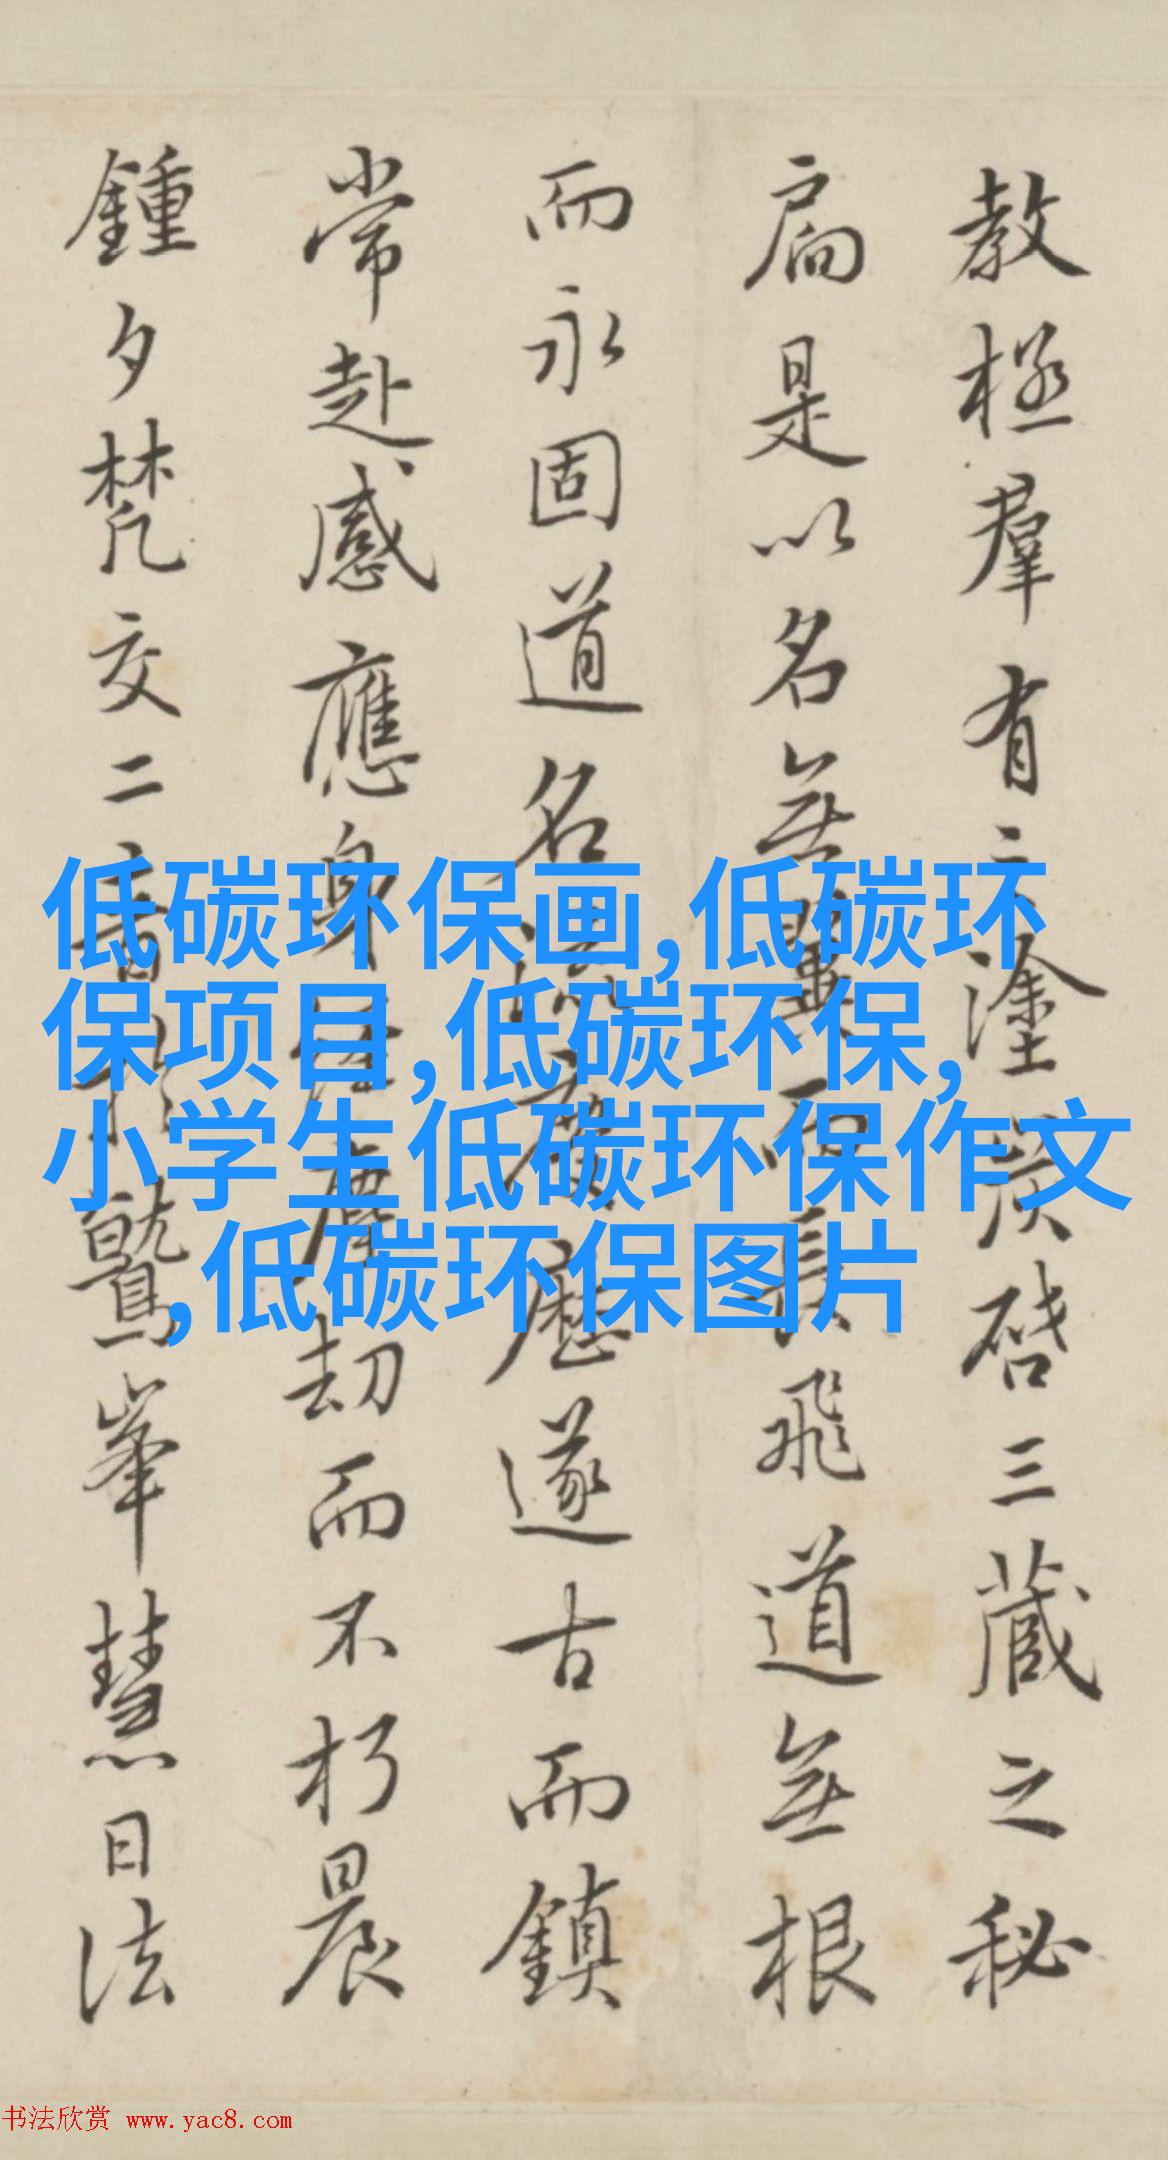 教極羣有之塗炭啓三藏之秘
扃是以名無翼而長飛道無根
而永固道名流慶歷遂古而鎮
常赴感應身經塵劫而不朽晨
鍾夕梵交二音於鷲峯慧日法
低碳环保画,低碳环
保项目,低碳环保,
小学生低碳环保作文
,低碳环保图片
书法欣赏 www.yac8.com